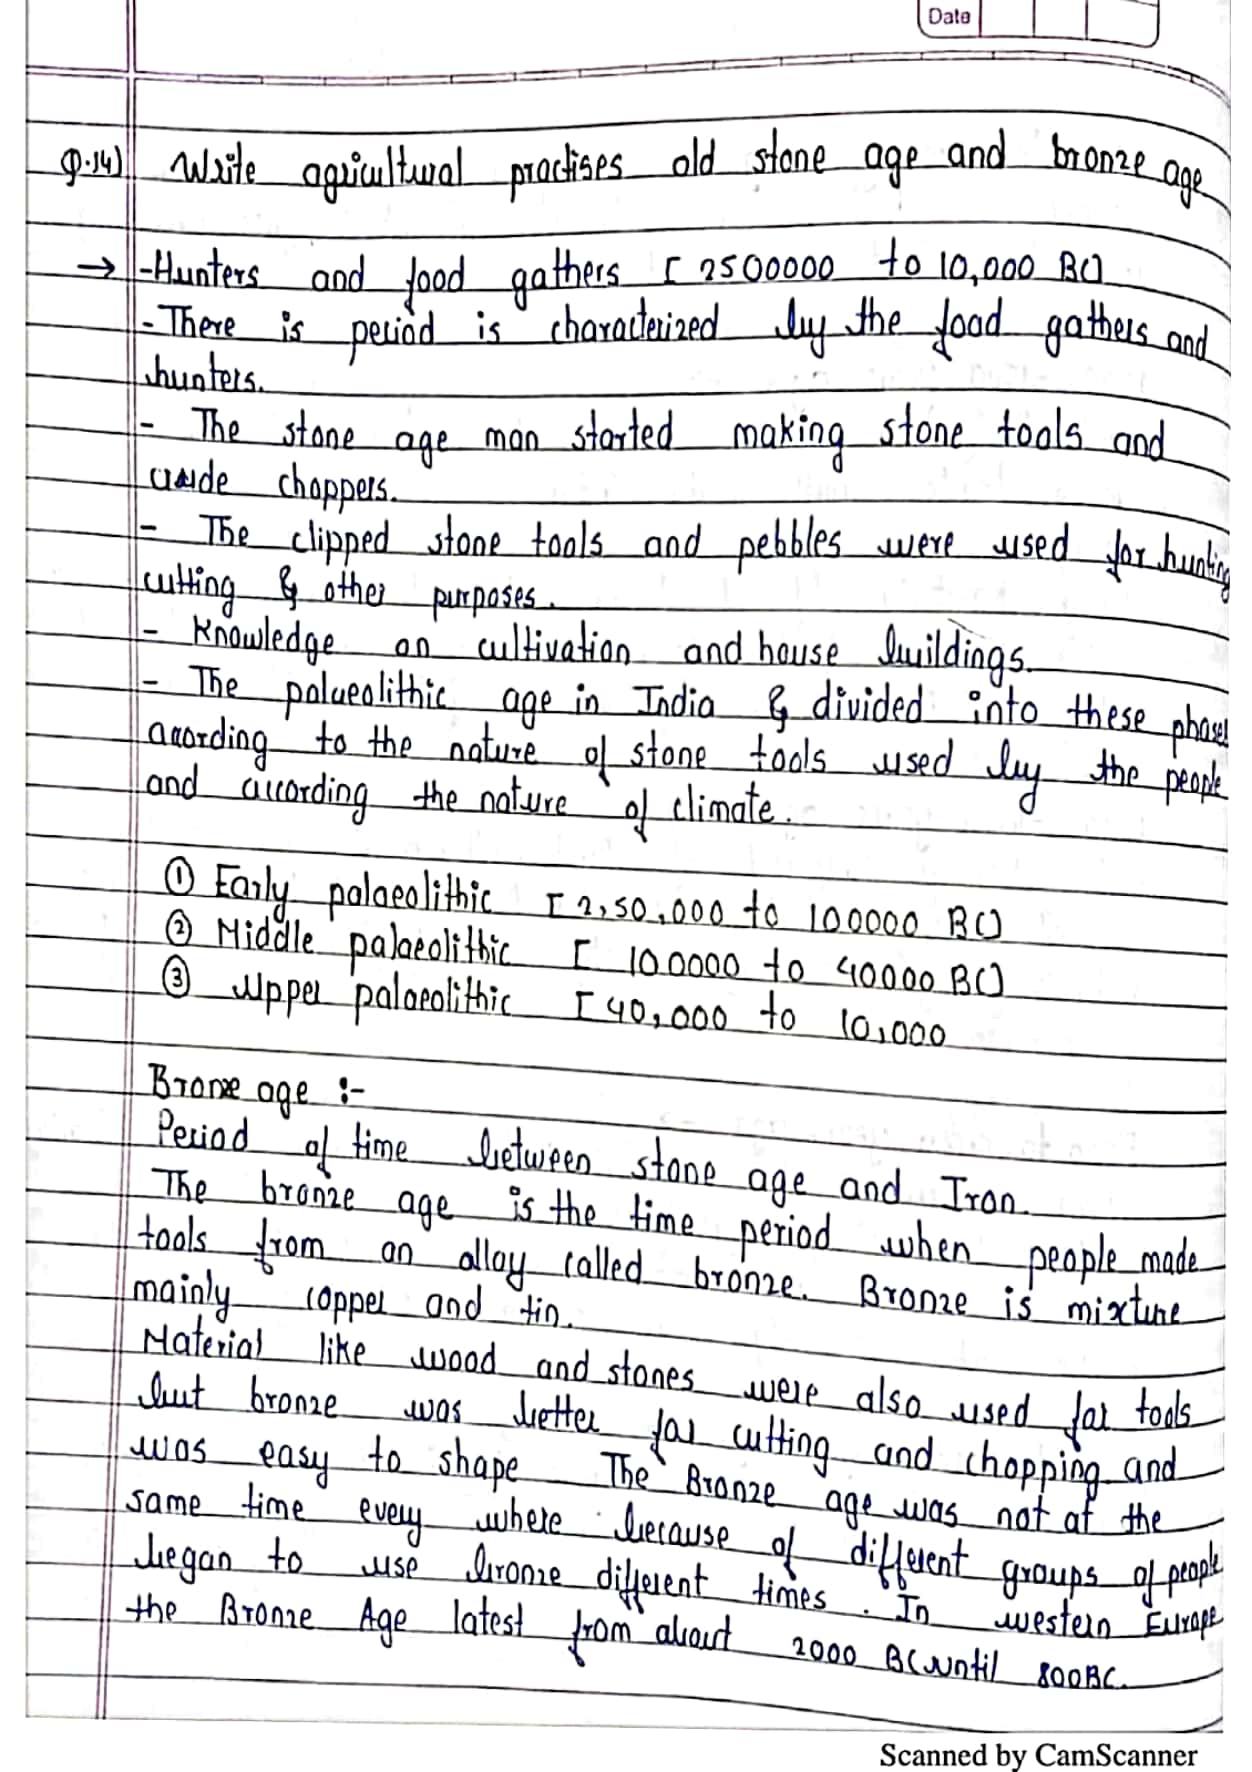 Date
Q.14) Write agricultural practises old stone age and bronze age
→ -Hunters and food gathers [2500000 to 10,000 BC]
- There is period is characterized by the food gathers and
hunters.
- The stone age man started making stone tools and
crude choppers.
- The clipped stone tools and pebbles were used for hunting
cutting & other purposes.
- Knowledge on cultivation and house buildings.
- The palaeolithic age in India & divided into these phases
acording to the nature of stone tools used by the people
and according the nature of climate.
① Early palaeolithic [2,50,000 to 100000 BC]
② Middle palaeolithic [100000 to 40000 BC]
③ Upper palaeolithic [40,000 to 10,000
Bronze age :-
Period of time between stone age and Iron.
The bronze age is the time period when people made
tools from an alloy called bronze. Bronze is mixture
mainly copper and tin.
Material like wood and stones were also used for tools
but bronze was better for cutting and chopping and
was easy to shape The Bronze age was not at the
same time every where because of different groups of people
began to use bronze different times. In western Europe
the Bronze Age latest from about 2000 BC until 800BC.
Scanned by CamScanner